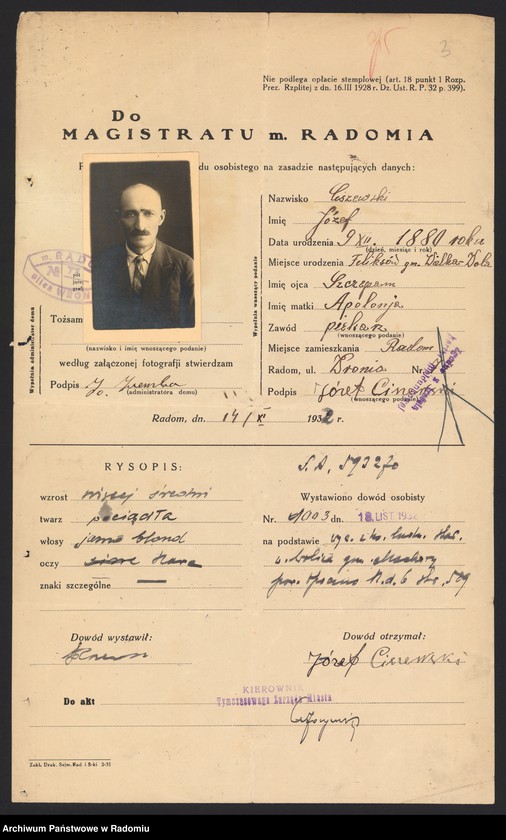 3
Nie podlega opłacie stemplowej (art. 18 punkt 1 Rozp.
Prez. Rzplitej z dn. 16.III 1928 r. Dz. Ust. R. P. 32 p. 399).
Do
MAGISTRATU m. RADOMIA
du osobistego na zasadzie następujących danych:
Nazwisko Ciszewski
Imię Józef
Data urodzenia 9 XII. 1880 roku
(dzień, miesiąc i rok)
Miejsce urodzenia Feliksów gm.
Imię ojca Szczepan
Imię matki Apolonja
Zawód piekarz
(wnoszącego podanie)
Miejsce zamieszkania Radom
Radom, ul. Wronia Nr.
Podpis Józef Ciszewski
(wnoszącego podanie)
Wypełnia wnoszący podanie
Wypełnia administrator domu
m. RADOM
ulica WRON
Tożsam
(nazwisko i imię wnoszącego podanie)
według załączonej fotografii stwierdzam
Podpis
(administratora domu)
Radom, dn. 14/XI 1932 r.
RYSOPIS:
wzrost więcej średni
twarz pociągła
włosy jasno blond
oczy
znaki szczególne —
S.A. 593270
Wystawiono dowód osobisty
Nr. 4003 dn. 18. LIST 1932
na podstawie
Dowód wystawił:
Dowód otrzymał:
Józef Ciszewski
Do akt
KIEROWNIK
Tymczasowego Zarządu Miasta
Zakł. Druk. Sejm. Rad i S-ki 2-31
Archiwum Państwowe w Radomiu